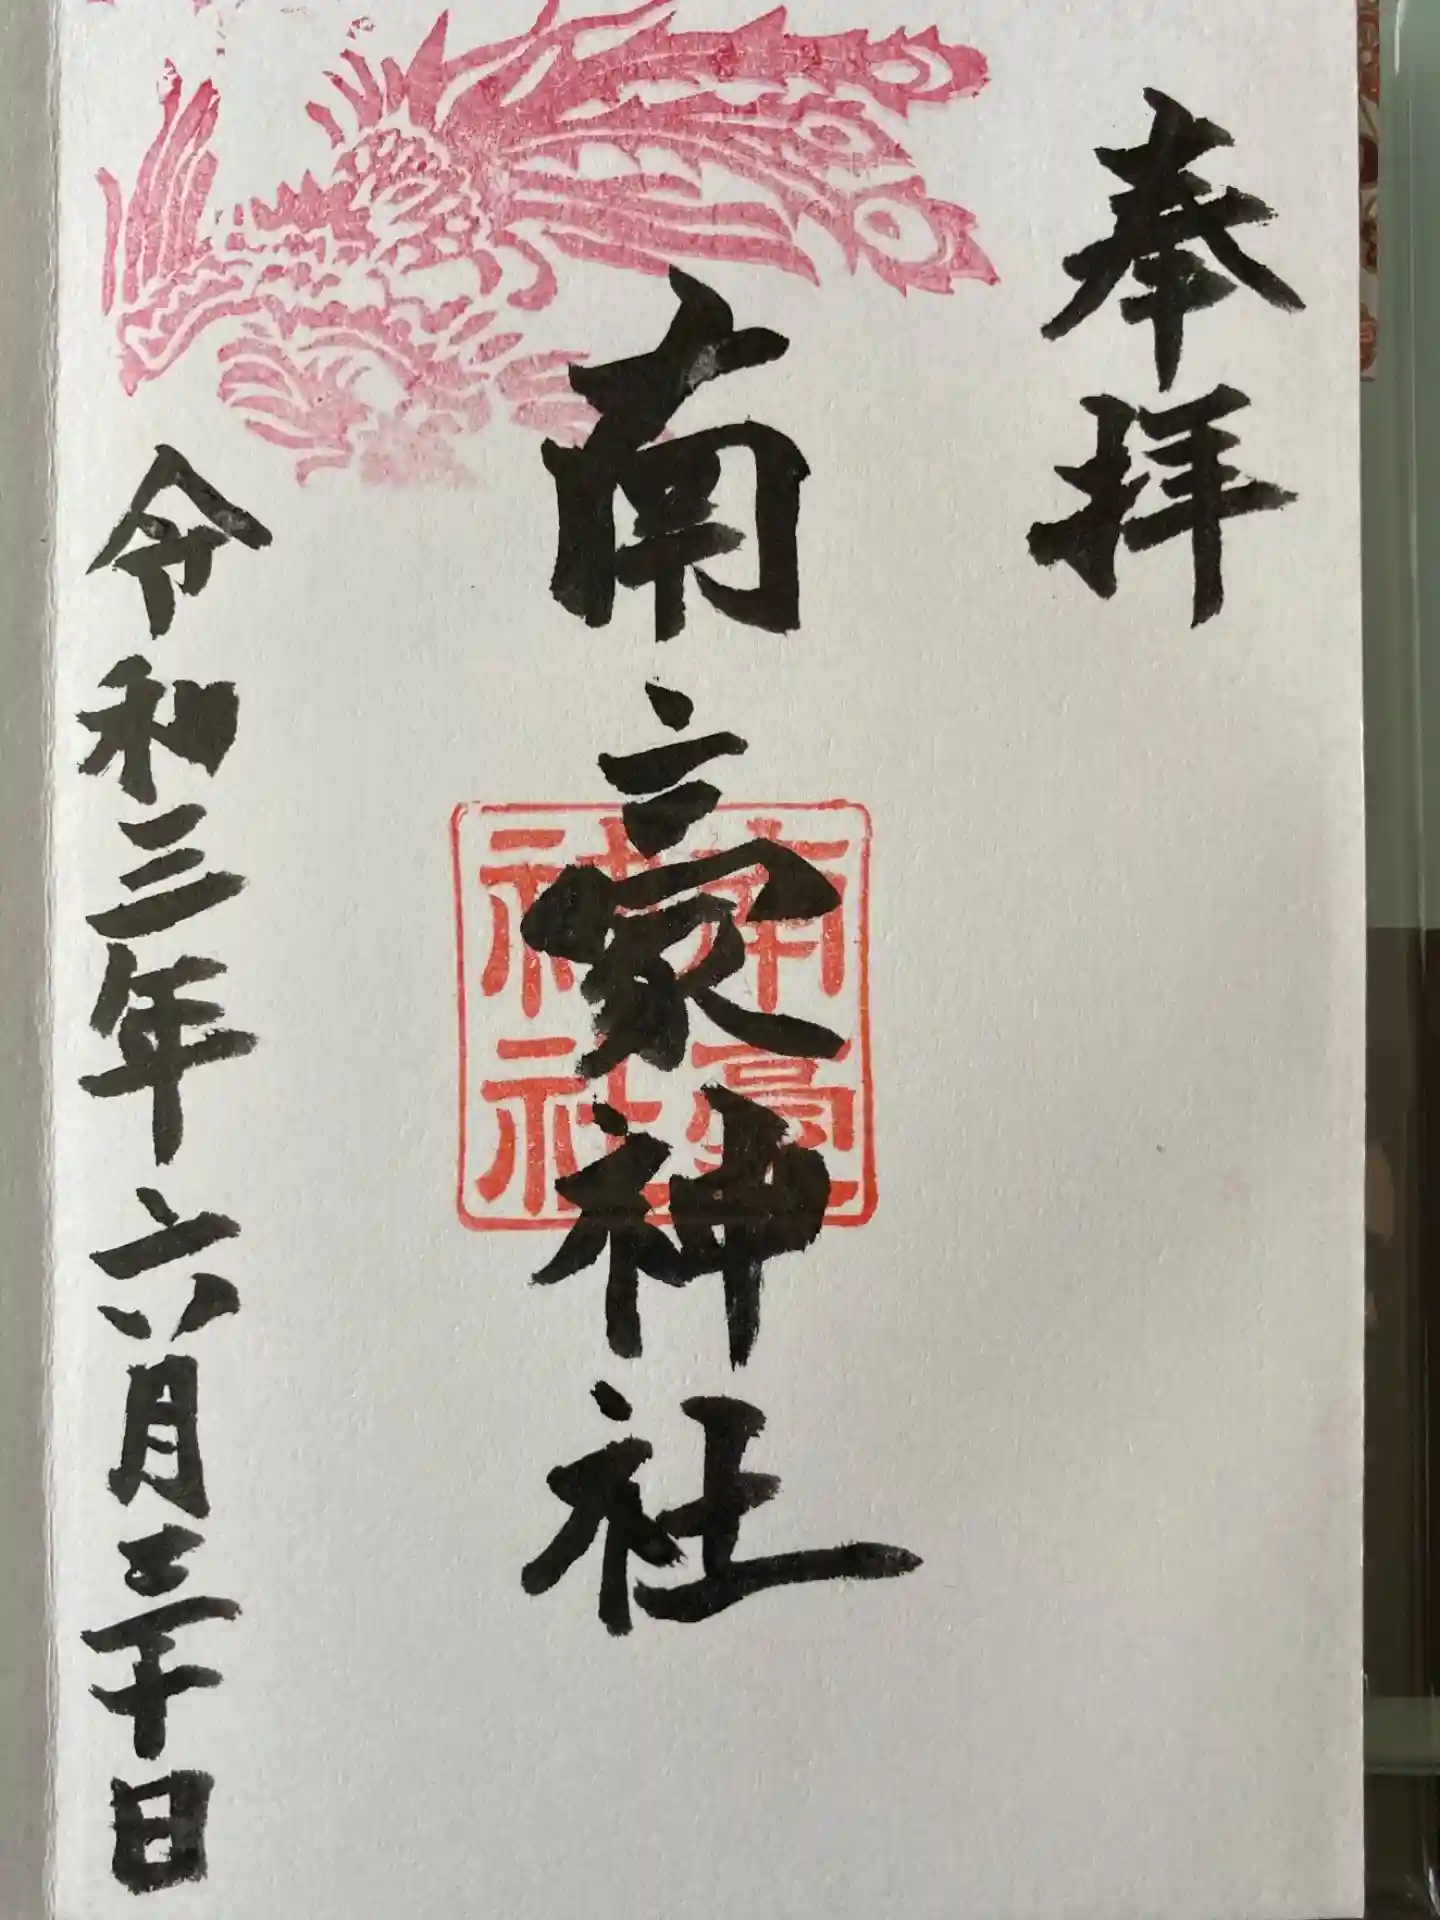 奉拝
南豪神社
令和三年六月三十日
南豪
神社